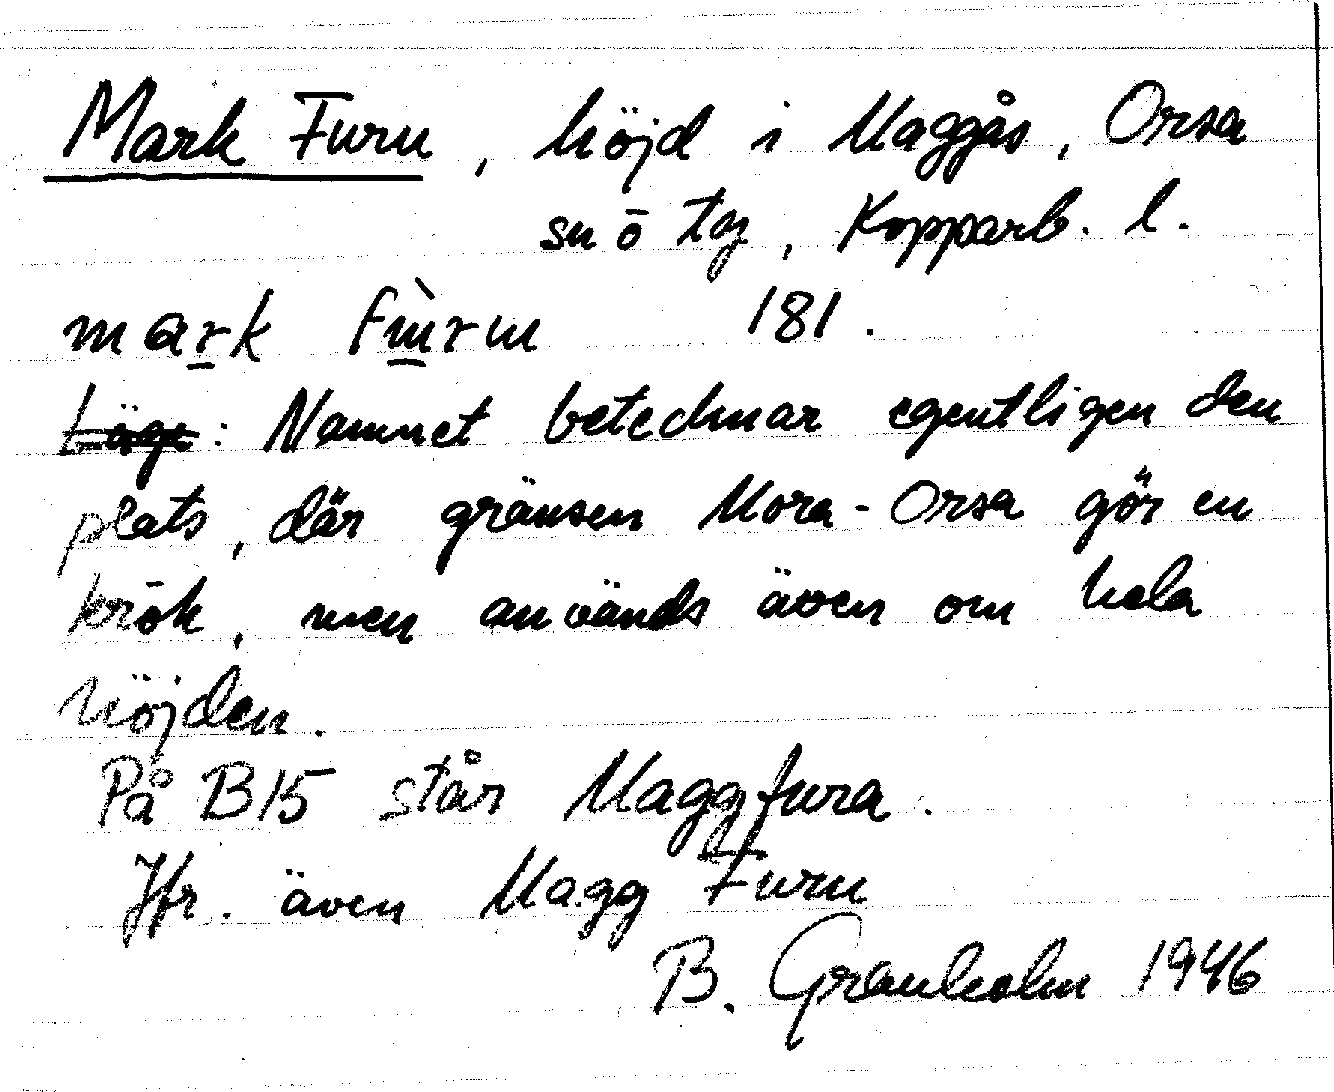 Mark Furu, höjd i Maggås, Orsa
sn ö tg, Kopparb. l.
mark 181.
Läge: Namnet betecknar egentligen den
plats, där gränsen Mora-Orsa gör en
krök, men används även om hela
höjden.
På B15 står Maggfura.
Jfr. även Magg Furu
B. Granholm 1946